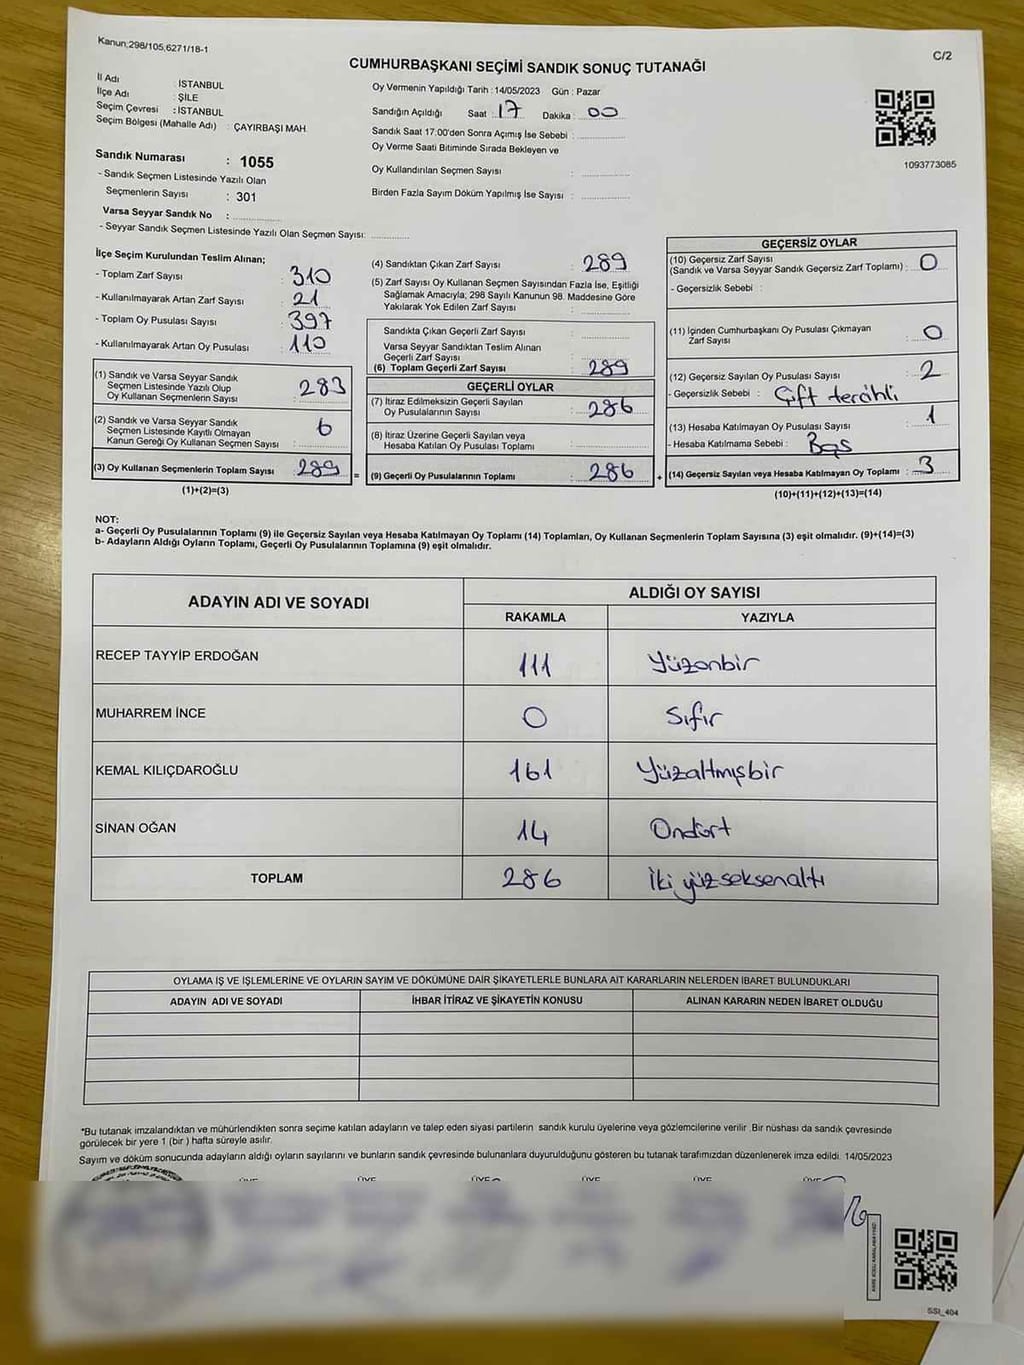 Kanun;298/105,6271/18-1
C/2
CUMHURBAŞKANI SEÇİMİ SANDIK SONUÇ TUTANAĞI
İl Adı : İSTANBUL
İlçe Adı : ŞİLE
Seçim Çevresi : İSTANBUL
Seçim Bölgesi (Mahalle Adı) : ÇAYIRBAŞI MAH.
Sandık Numarası : 1055
- Sandık Seçmen Listesinde Yazılı Olan
Seçmenlerin Sayısı : 301
Varsa Seyyar Sandık No :
- Seyyar Sandık Seçmen Listesinde Yazılı Olan Seçmen Sayısı:
Oy Vermenin Yapıldığı Tarih : 14/05/2023 Gün : Pazar
Sandığın Açıldığı Saat : 17 Dakika : 00
Sandık Saat 17:00'den Sonra Açımış İse Sebebi :
Oy Verme Saati Bitiminde Sırada Bekleyen ve
Oy Kullandırılan Seçmen Sayısı :
Birden Fazla Sayım Döküm Yapılmış İse Sayısı :
1093773085
İlçe Seçim Kurulundan Teslim Alınan;
- Toplam Zarf Sayısı : 310
- Kullanılmayarak Artan Zarf Sayısı : 21
- Toplam Oy Pusulası Sayısı : 397
- Kullanılmayarak Artan Oy Pusulası : 110
(1) Sandık ve Varsa Seyyar Sandık
Seçmen Listesinde Yazılı Olup
Oy Kullanan Seçmenlerin Sayısı : 283
(2) Sandık ve Varsa Seyyar Sandık
Seçmen Listesinde Kayıtlı Olmayan
Kanun Gereği Oy Kullanan Seçmen Sayısı : 6
(3) Oy Kullanan Seçmenlerin Toplam Sayısı : 289
(1)+(2)=(3)
=
(4) Sandıktan Çıkan Zarf Sayısı : 289
(5) Zarf Sayısı Oy Kullanan Seçmen Sayısından Fazla İse, Eşitliği
Sağlamak Amacıyla; 298 Sayılı Kanunun 98. Maddesine Göre
Yakılarak Yok Edilen Zarf Sayısı :
Sandıkta Çıkan Geçerli Zarf Sayısı :
Varsa Seyyar Sandıktan Teslim Alınan
Geçerli Zarf Sayısı :
(6) Toplam Geçerli Zarf Sayısı : 289
GEÇERLİ OYLAR
(7) İtiraz Edilmeksizin Geçerli Sayılan
Oy Pusulalarının Sayısı : 286
(8) İtiraz Üzerine Geçerli Sayılan veya
Hesaba Katılan Oy Pusulası Toplamı :
(9) Geçerli Oy Pusulalarının Toplamı : 286
+
GEÇERSİZ OYLAR
(10) Geçersiz Zarf Sayısı
(Sandık ve Varsa Seyyar Sandık Geçersiz Zarf Toplamı) : 0
- Geçersizlik Sebebi :
(11) İçinden Cumhurbaşkanı Oy Pusulası Çıkmayan
Zarf Sayısı : 0
(12) Geçersiz Sayılan Oy Pusulası Sayısı : 2
- Geçersizlik Sebebi : Çift tercihli
(13) Hesaba Katılmayan Oy Pusulası Sayısı : 1
- Hesaba Katılmama Sebebi : Boş
(14) Geçersiz Sayılan veya Hesaba Katılmayan Oy Toplamı : 3
(10)+(11)+(12)+(13)=(14)
NOT:
a- Geçerli Oy Pusulalarının Toplamı (9) ile Geçersiz Sayılan veya Hesaba Katılmayan Oy Toplamı (14) Toplamları, Oy Kullanan Seçmenlerin Toplam Sayısına (3) eşit olmalıdır. (9)+(14)=(3)
b- Adayların Aldığı Oyların Toplamı, Geçerli Oy Pusulalarının Toplamına (9) eşit olmalıdır.
ADAYIN ADI VE SOYADI
ALDIĞI OY SAYISI
RAKAMLA YAZIYLA
RECEP TAYYİP ERDOĞAN 111 Yüzonbir
MUHARREM İNCE 0 Sıfır
KEMAL KILIÇDAROĞLU 161 Yüzaltmışbir
SİNAN OĞAN 14 Ondört
TOPLAM 286 İki yüz seksenaltı
OYLAMA İŞ VE İŞLEMLERİNE VE OYLARIN SAYIM VE DÖKÜMÜNE DAİR ŞİKAYETLERLE BUNLARA AİT KARARLARIN NELERDEN İBARET BULUNDUKLARI
ADAYIN ADI VE SOYADI İHBAR İTİRAZ VE ŞİKAYETİN KONUSU ALINAN KARARIN NEDEN İBARET OLDUĞU
*Bu tutanak imzalandıktan ve mühürlendikten sonra seçime katılan adayların ve talep eden siyasi partilerin sandık kurulu üyelerine veya gözlemcilerine verilir .Bir nüshası da sandık çevresinde
görülecek bir yere 1 (bir ) hafta süreyle asılır.
Sayım ve döküm sonucunda adayların aldığı oyların sayılarını ve bunların sandık çevresinde bulunanlara duyurulduğunu gösteren bu tutanak tarafımızdan düzenlenerek imza edildi. 14/05/2023
ÜYE ÜYE ÜYE ÜYE ÜYE ÜYE
SSI_404